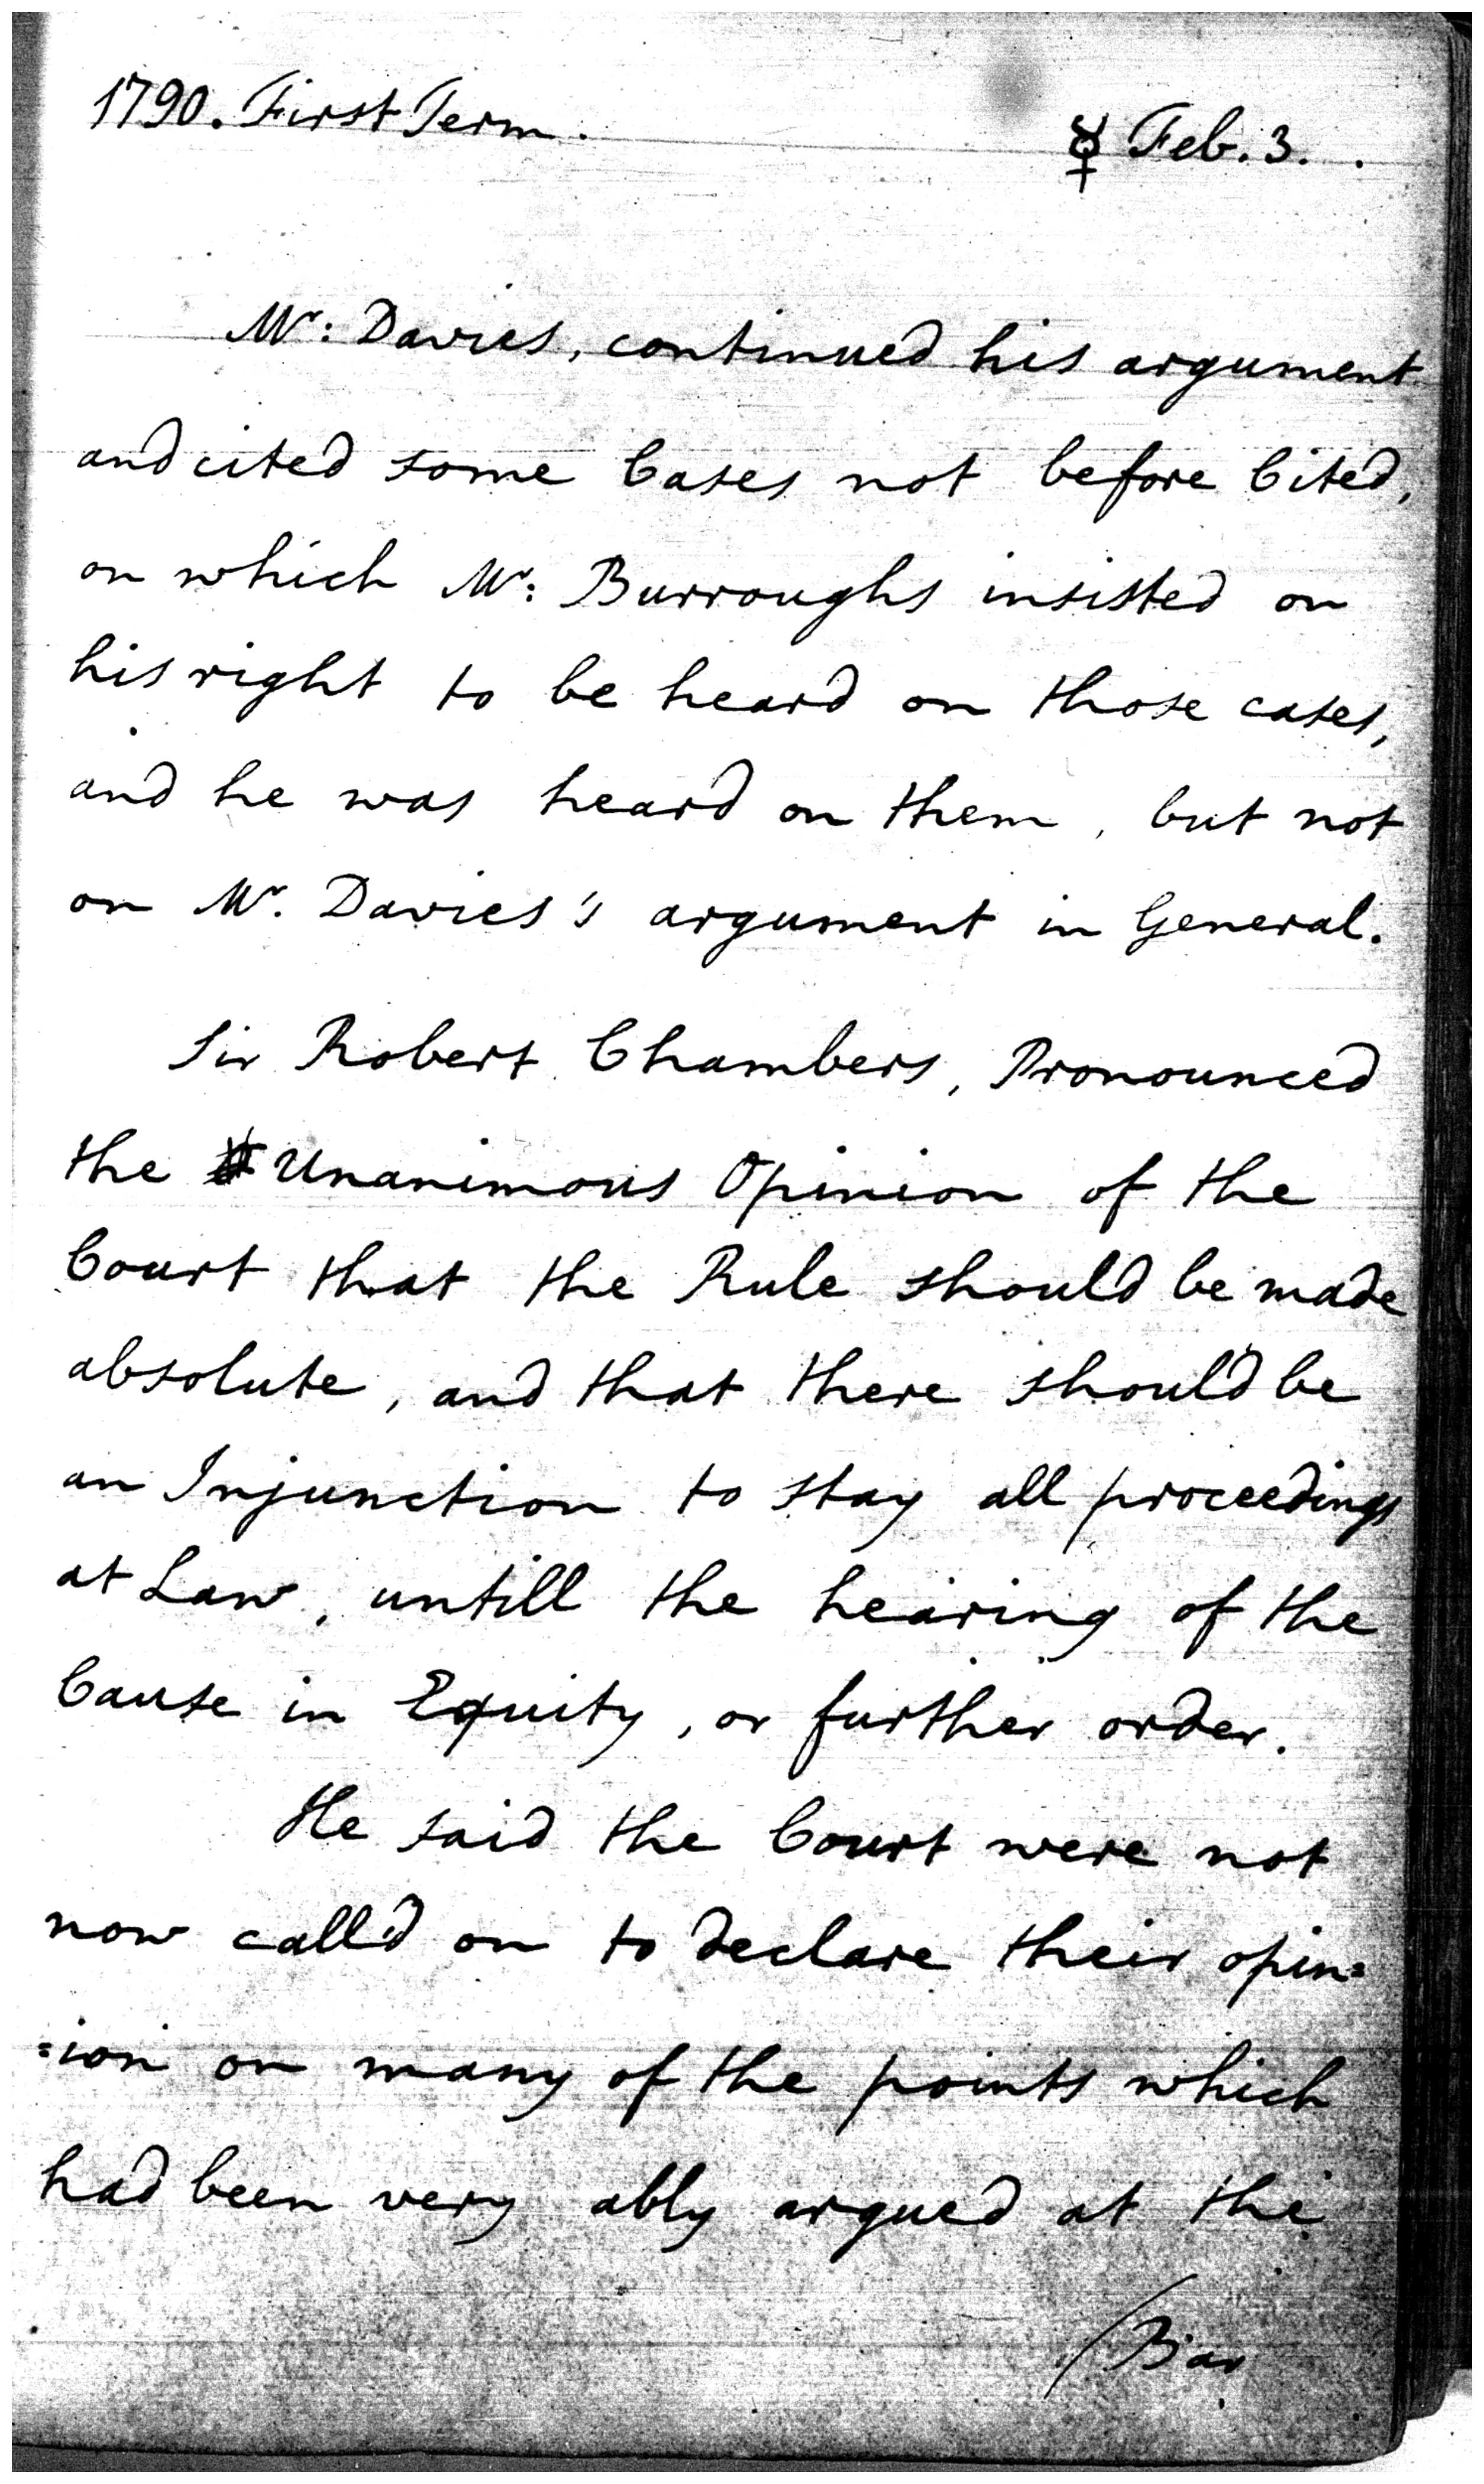 1790. First Term.
☿ Feb. 3.
Mr: Davies, continued his argument
and cited some Cases not before Cited,
on which Mr: Burroughs insisted on
his right to be heard on those cases,
and he was heard on them, but not
on Mr. Davies's argument in General.
Sir Robert Chambers, Pronounced
the Unanimous Opinion of the
Court that the Rule should be made
absolute, and that there should be
an Injunction to stay all proceedings
at Law, untill the hearing of the
Cause in Equity, or further order.
He said the Court were not
now call'd on to declare their opin=
=ion on many of the points which
had been very ably argued at the
/Bar